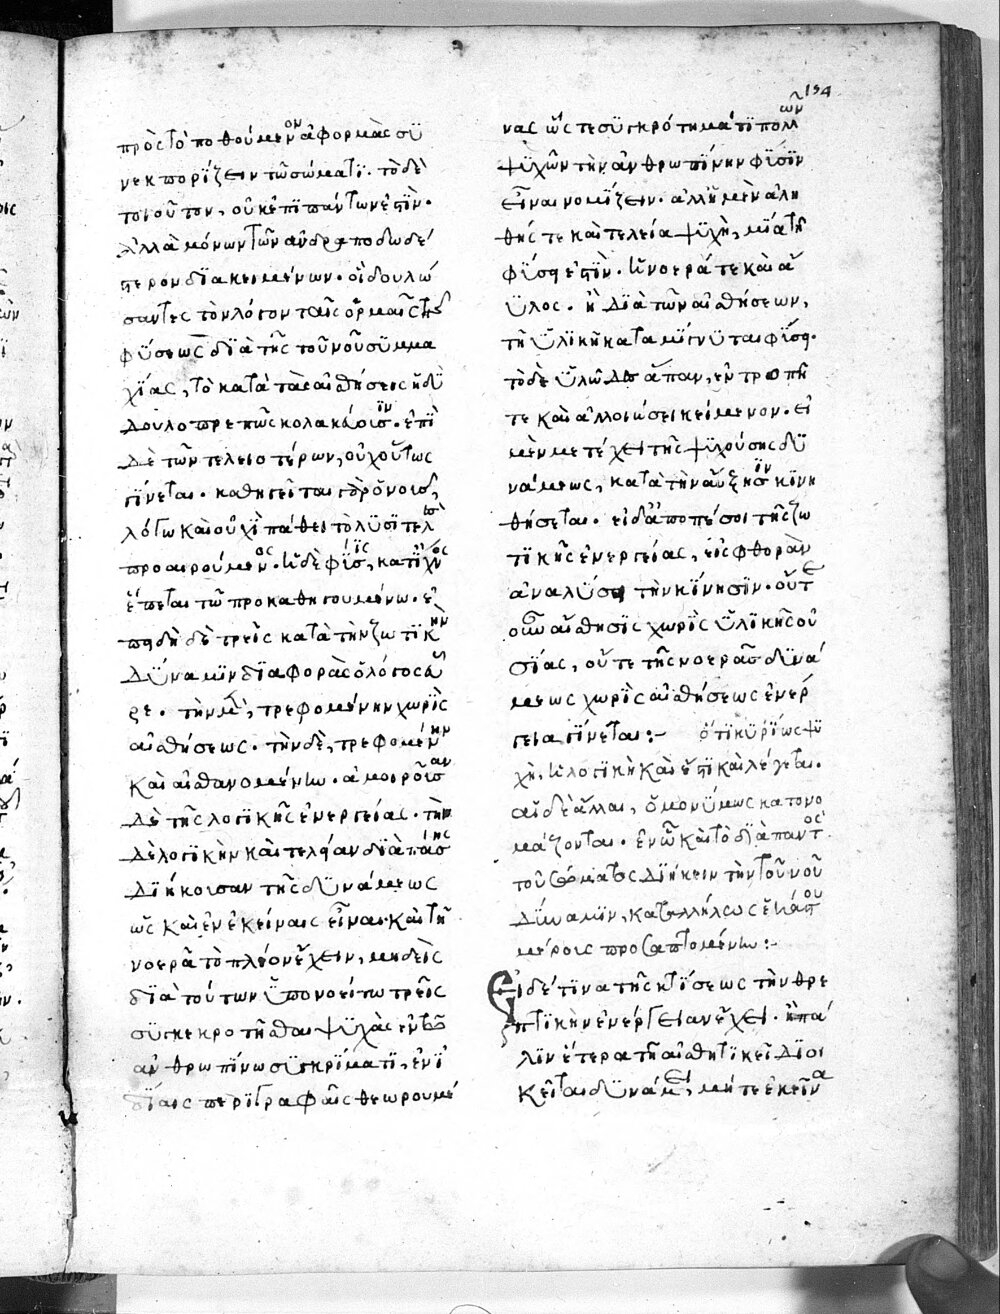 134
πρὸς τὸ ποθούμενον ἀφορμὰς συ
νεκπορίζειν τῶ σώματι. τὸ δὲ
τοιοῦτον, οὐκ ἐπὶ πάντων ἐστὶν.
ἀλλὰ μόνων τῶν ἀνδραποδωδέ
στερον διακειμένων. οἳ δουλώ
σαντες τὸν λόγον ταῖς ὁρμαῖς τῆς
φύσεως διὰ τῆς τοῦ νοῦ συμμα
χίας, τὸ κατὰ τὰς αἰσθήσεις ἡδὺ
δουλοπρεπῶς κολακεύουσιν. ἐπὶ
δὲ τῶν τελειοτέρων, οὐχ οὕτως
γίνεται. καθηγεῖται γὰρ ὁ νοῦς,
λόγω καὶ οὐχὶ πάθει τὸ λυσιτελὲς
προαιρούμενος. ἡ δὲ φύσις, κατίχνος
ἕπεται τῶ προκαθηγουμένω. ἐ
πειδὴ δὲ τρεῖς κατὰ τὴν ζωτικὴν
δύναμιν διαφορὰς ὁ λόγος εὗ
ρε. τὴν μὲν, τρεφομένην χωρὶς
αἰσθήσεως. τὴν δὲ, τρεφομένην
καὶ αἰσθανομένην. ἀμοιροῦσαν
δὲ τῆς λογικῆς ἐνεργείας. τὴν
δὲ λογικὴν καὶ τελείαν διὰ πάσης
διήκουσαν τῆς δυνάμεως
ὡς καὶ ἐν ἐκείναις εἶναι. καὶ τῆ
νοερᾶ τὸ πλέον ἔχειν, μηδεὶς
διὰ τούτων ὑπονοείτω τρεῖς
συγκεκροτῆσθαι ψυχὰς ἐν τῶ
ἀνθρωπίνω συγκρίματι, ἐν ἰ
δίαις περιγραφαῖς θεωρουμέ
νας ὥστε συγκρότημά τι πολλῶν
ψυχῶν τὴν ἀνθρωπίνην φύσιν
εἶναι νομίζειν. ἀλλ' ἡ μὲν ἀλη
θής τε καὶ τελεία ψυχὴ, μία τῆ
φύσει ἐστὶν. ἡ νοερά τε καὶ ἄ
ϋλος. ἡ διὰ τῶν αἰσθήσεων,
τῆ ὑλικῆ καταμίγνυται φύσει.
τὸ δὲ ὑλῶδες ἅπαν, ἐν τροπῆ
τε καὶ ἀλλοιώσει κείμενον. εἰ
μὲν μετέχει τῆς ψυχούσης δυ
νάμεως, κατὰ τὴν αὔξησιν κινη
θήσεται. εἰ δ' ἀποπέσοι τῆς ζω
τικῆς ἐνεργείας, εἰς φθορὰν
ἀναλύσει τὴν κίνησιν. οὔτε
οὖν αἴσθησις χωρὶς ὑλικῆς οὐ
σίας, οὔτε τῆς νοερᾶς δυνά
μεως χωρὶς αἰσθήσεως ἐνέρ
γεια γίνεται:- ὅτι κυρίως ψυ
χὴ, ἡ λογικὴ καὶ ἔστι καὶ λέγεται.
αἱ δὲ ἄλλαι, ὁμονύμως κατονο
μάζονται. ἐν ὧ καὶ τὸ διὰ παντὸς
τοῦ σώματος διήκειν τὴν τοῦ νοῦ
δύναμιν, καταλλήλως ἑκάστου
μέροις προσαπτομένην:-
Εἰ δέ τινα τῆς κτίσεως τὴν θρε
πτικὴν ἐνέργειαν ἔχει. ἢ πά
λιν ἕτερα τῆ αἰσθητικεῖ διοι
κεῖται δυνάμει, μήτε ἐκεῖνα